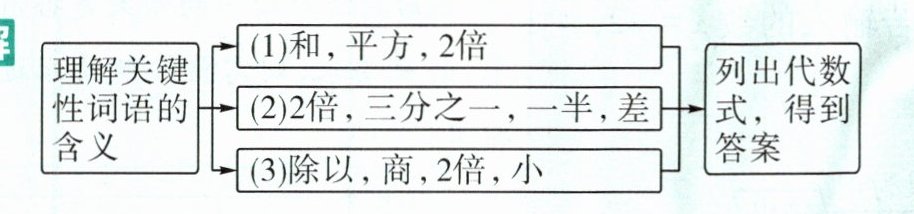 理解关键
性词语的
含义
(1)和,平方,2倍
(2)2倍,三分之一,一半,差
(3)除以,商,2倍,小
列出代数
式,得到
答案